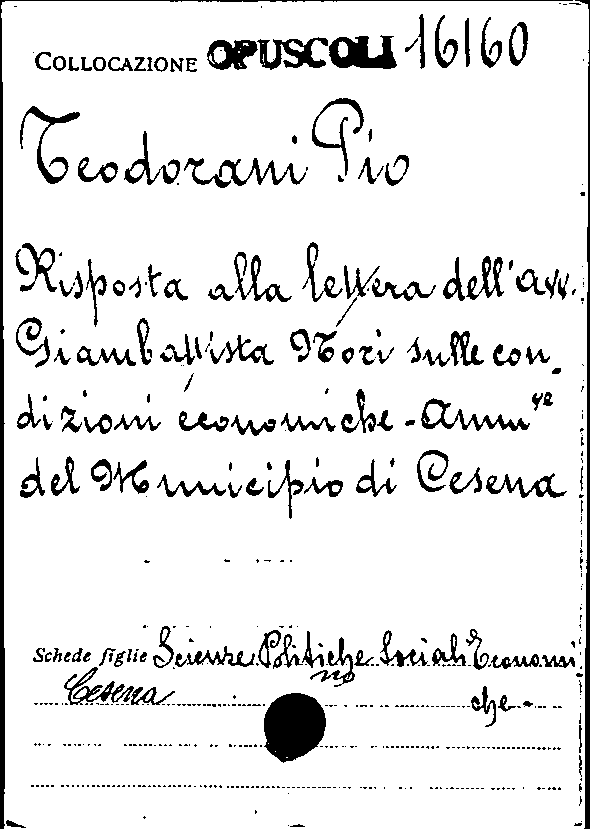 COLLOCAZIONE OPUSCOLI 16160
Teodorani Pio
Risposta alla lettera dell'avv.
Giambattista Nori sulle con-
dizioni economiche - Amm ve
del Municipio di Cesena
Schede figlie Scienze Politiche Sociali Economi
no
Cesena che -